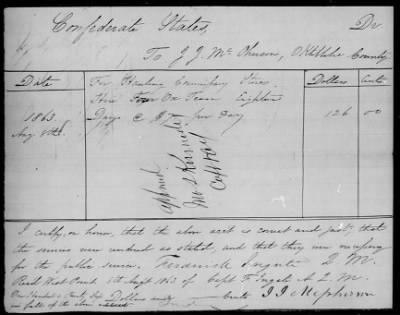 Confederate States, Dr.
To J. J. McPherson, Oktibbeha County
Date
Dollars Cents
For Hauling Commissary Stores
This Four Ox Team Eighteen
1863 Days @ $7 per Day 126 00
Aug 8th
Approved
Jno S Kennedy
Capt &
I certify, on honor, that the above acct is correct and just; that
the services were rendered as stated, and that they were necessary
for the public service. Frederick Q. M.
Recd West Point 8th Augt 1863 of Capt F. A. Q. M.
One Hundred & Twenty Six Dollars and Cents J J McPherson
in full of the above account